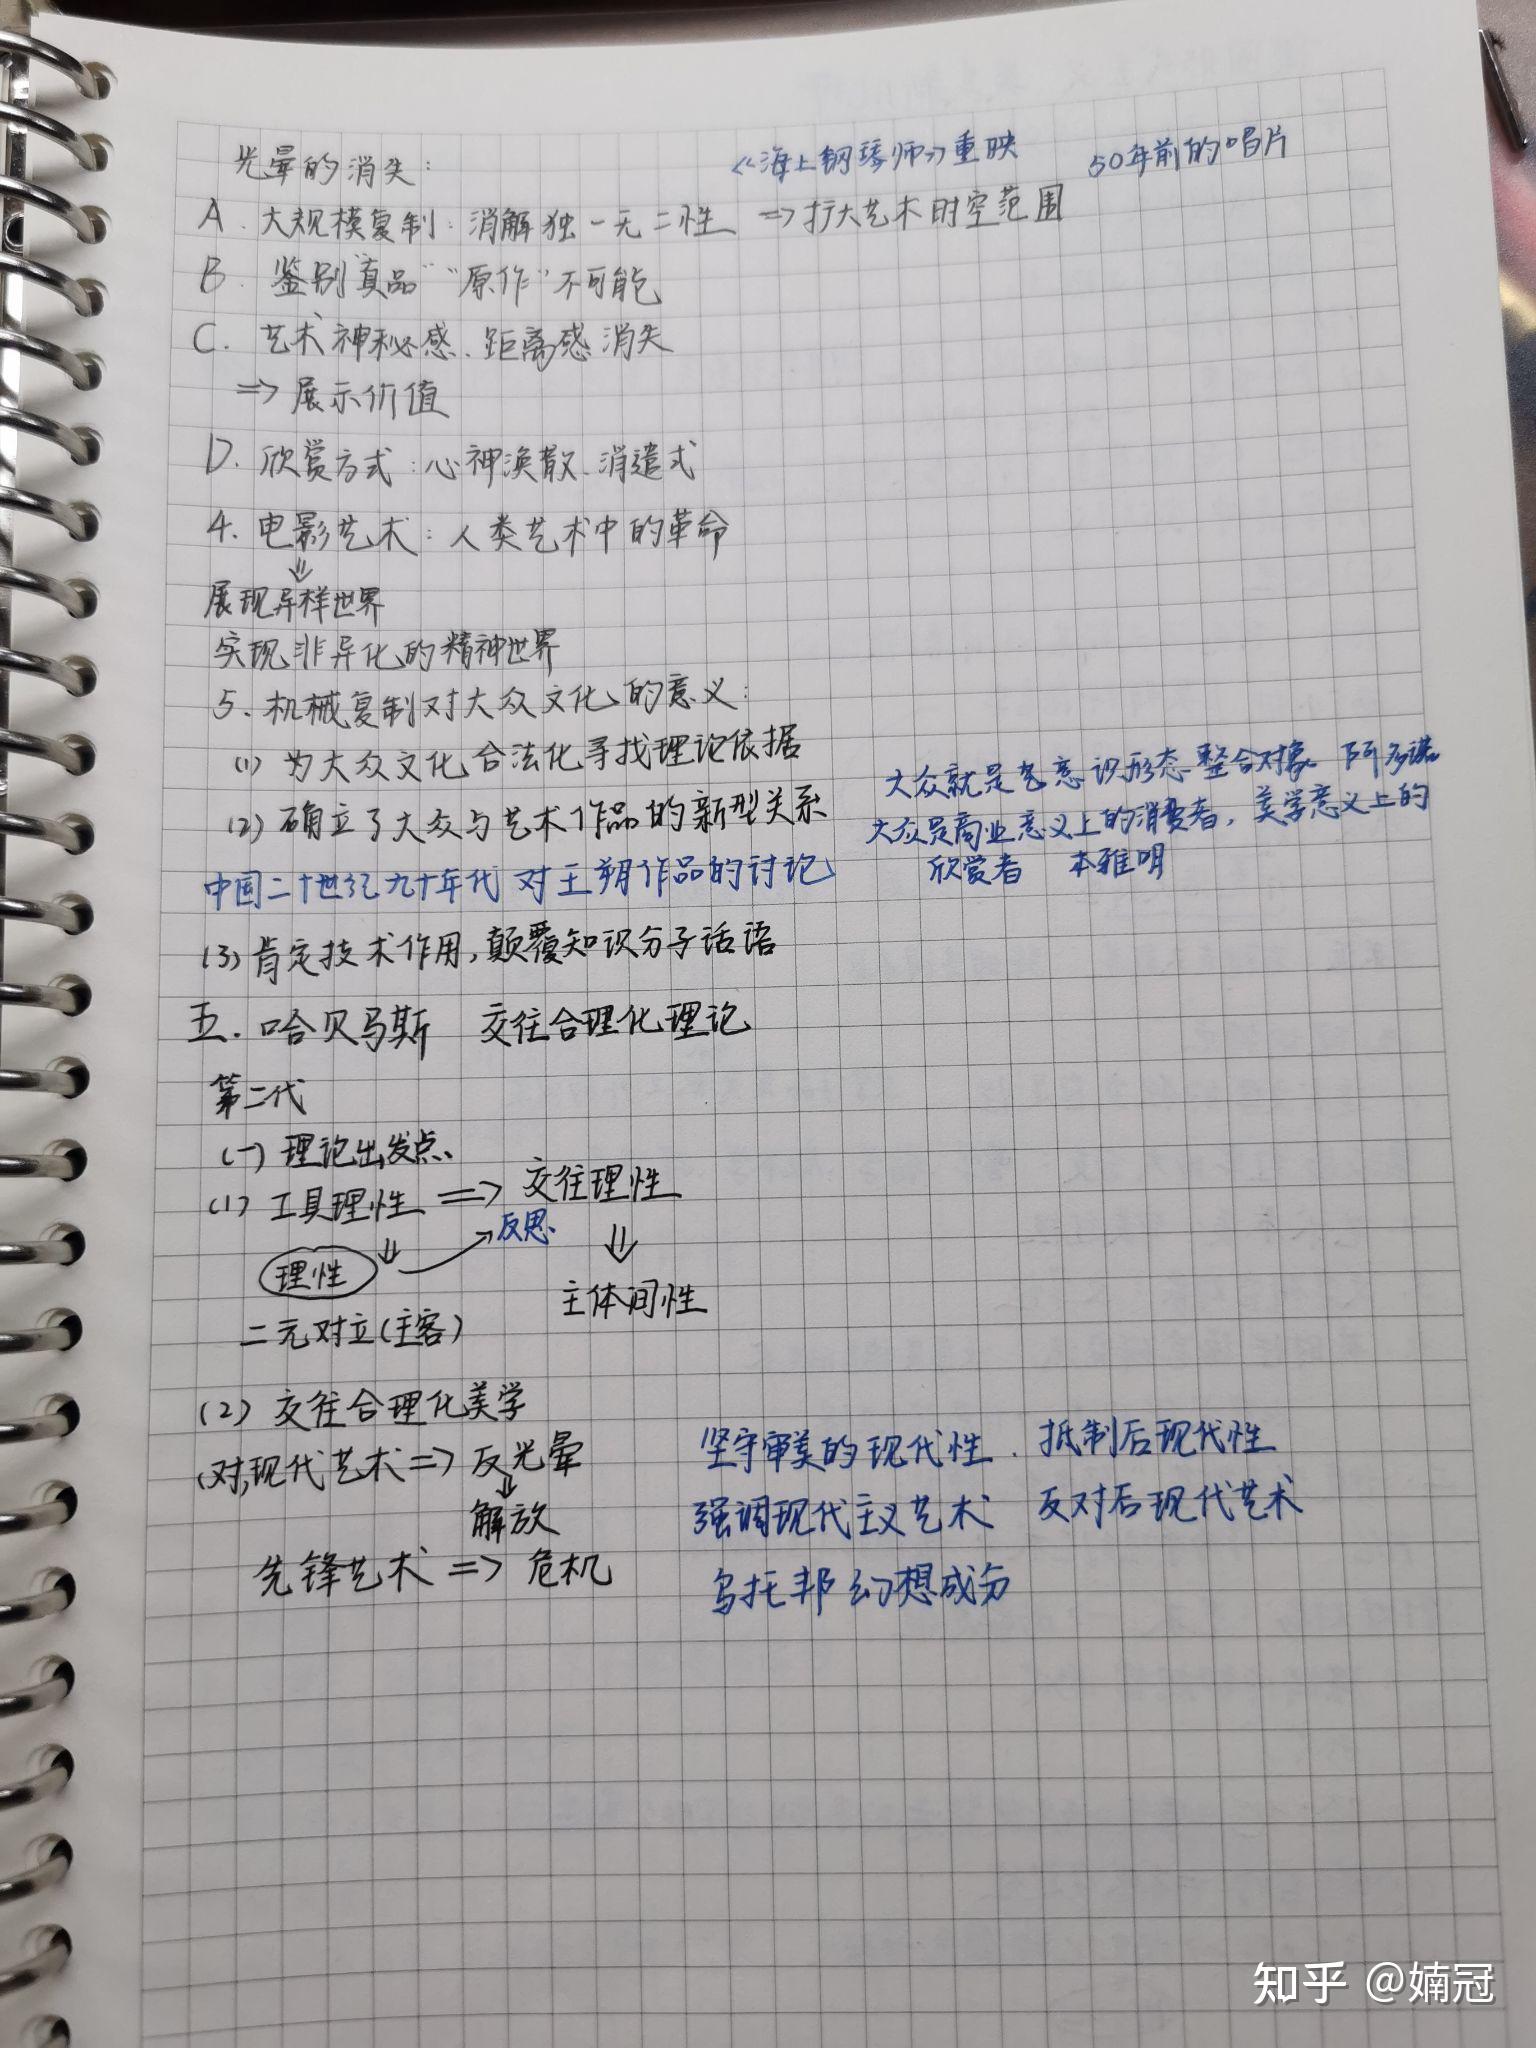 光晕的消失: 《海上钢琴师》重映 50年前的唱片
A. 大规模复制: 消解独一无二性 => 扩大艺术时空范围
B. 鉴别"真品""原作"不可能
C. 艺术神秘感、距离感消失
=> 展示价值
D. 欣赏方式: 心神涣散、消遣式
4. 电影艺术: 人类艺术中的革命
⇓
展现异样世界
实现非异化的精神世界
5. 机械复制对大众文化的意义:
(1) 为大众文化合法化寻找理论依据
大众就是意识形态整合对象 阿多诺
(2) 确立了大众与艺术作品的新型关系
大众是商业意义上的消费者, 美学意义上的
欣赏者 本雅明
中国二十世纪九十年代 对王朔作品的讨论
(3) 肯定技术作用, 颠覆知识分子话语
五. 哈贝马斯 交往合理化理论
第二代
(一) 理论出发点、
(1) 工具理性 => 交往理性
⇓ → 反思 ⇓
理性 主体间性
二元对立(主客)
(2) 交往合理化美学
(对)现代艺术 => 反光晕 坚守审美的现代性、抵制后现代性
↓
解放 强调现代主义艺术 反对后现代艺术
先锋艺术 => 危机 乌托邦幻想成分
知乎 @婻冠